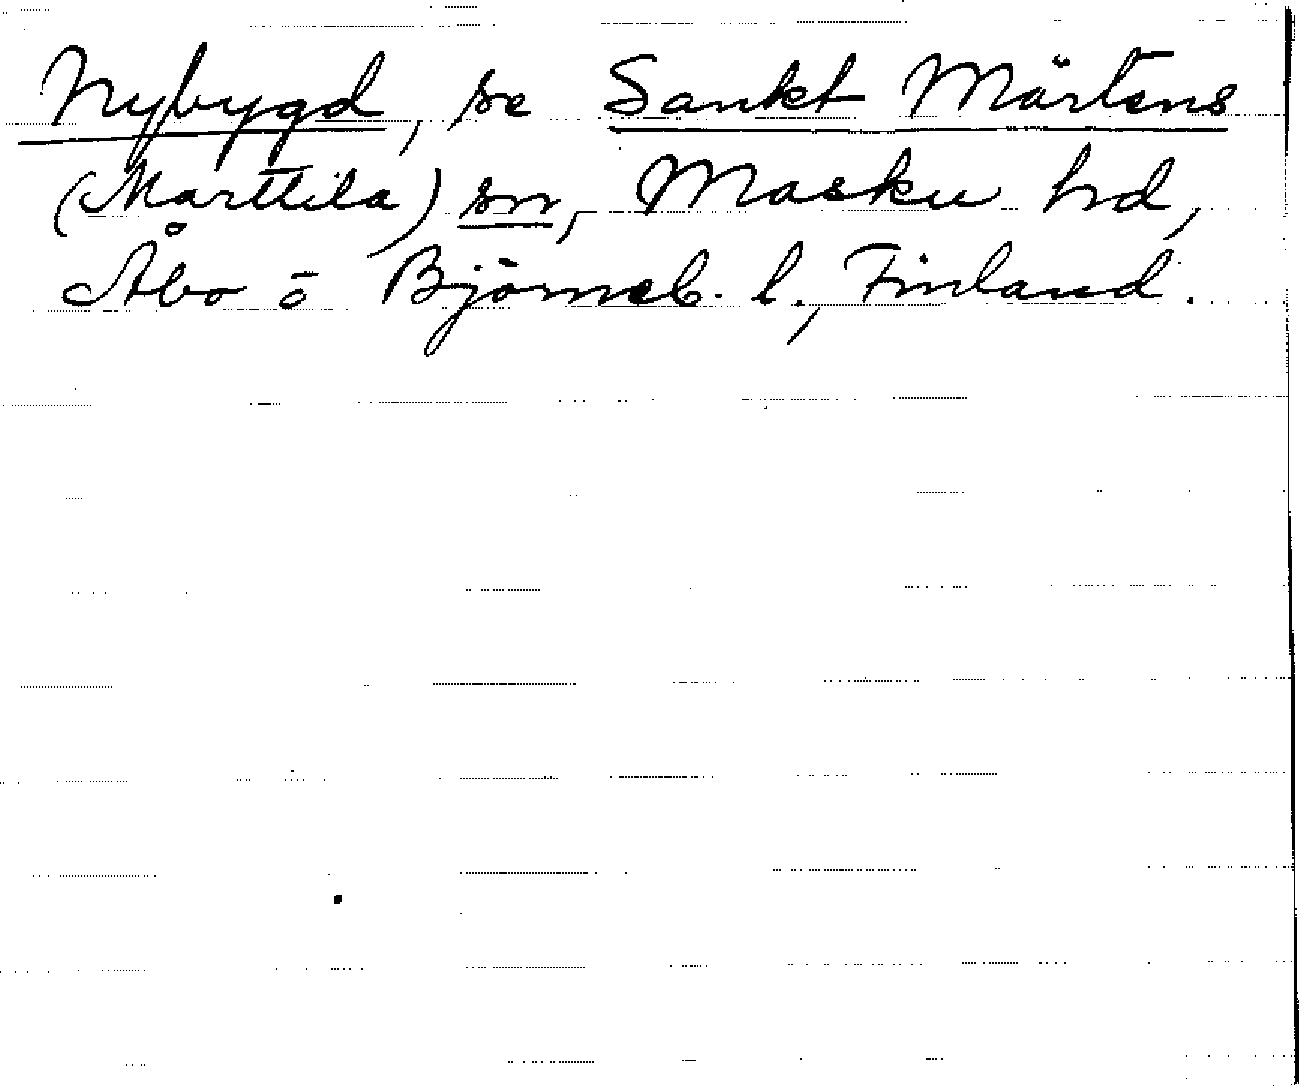 Nybygd, se Sankt Mårtens
(Marttila) sn, Masku hd,
Åbo o Björneb. l., Finland.